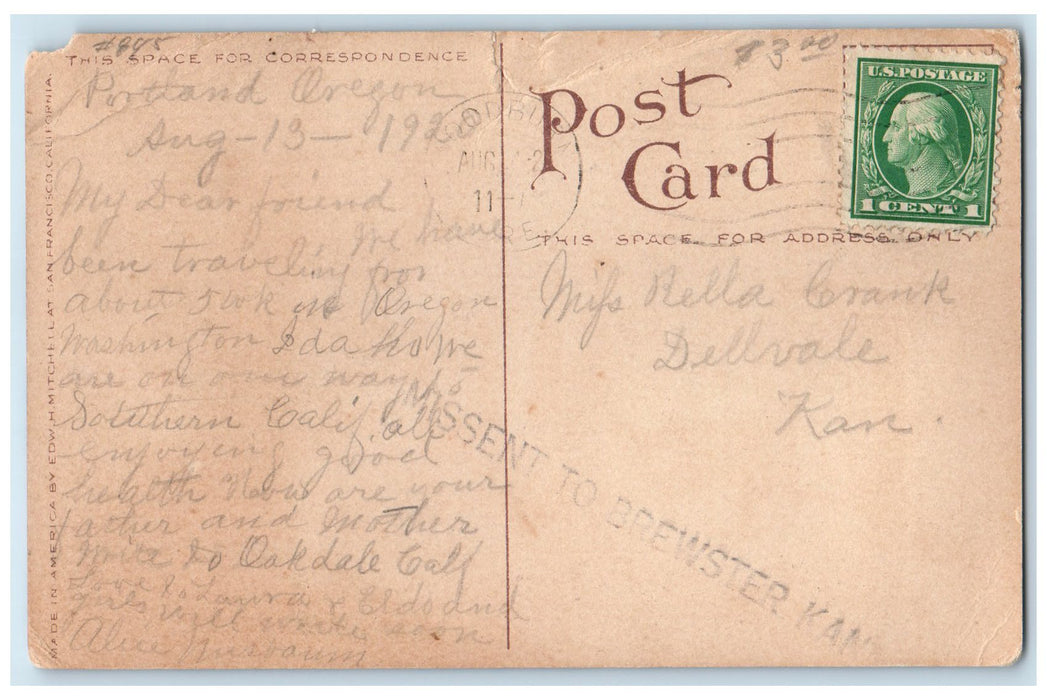 #895
THIS SPACE FOR CORRESPONDENCE
Portland Oregon
Aug-13-192
My Dear friend
We have
been traveling for
about 5 wk in Oregon
Washington Idaho We
are on our way to
Southern Calif. all
enjoying good
health How are your
father and Mother
Write to Oakdale Calif
Love to Laura & Eldo and
girls will write soon
Alice Nusbaum
MADE IN AMERICA BY EDW. H. MITCHELL AT SAN FRANCISCO, CALIFORNIA.
$3.00
Post
Card
U.S. POSTAGE
1 CENT 1
AUG
11
ORE
THIS SPACE FOR ADDRESS ONLY
Miss Rella Crank
Dellvale
Kan.
MISSENT TO BREWSTER KAN